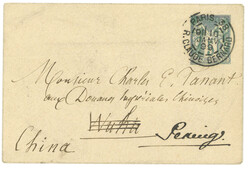 PARIS
R. CLAUDE BERNARD
Monsieur Charles E. Tanant
aux Douanes Impériales Chinoises
Wuhu
Peking
China